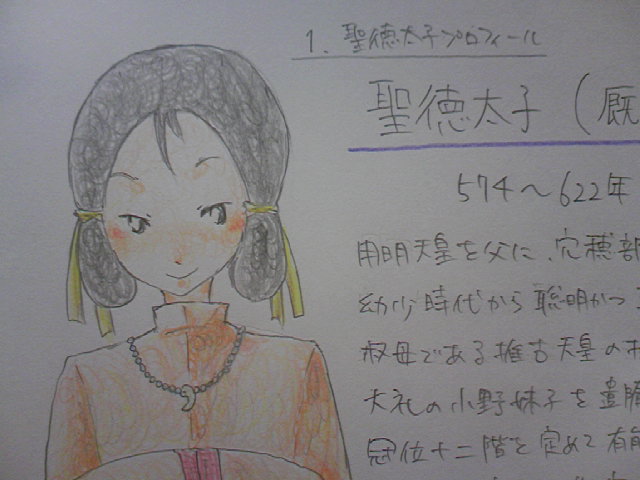 1. 聖徳太子プロフィール
聖徳太子（厩
574～622年
用明天皇を父に、穴穂部
幼少時代から聡明かつ
叔母である推古天皇の
大礼の小野妹子を遣隋
冠位十二階を定めて有能